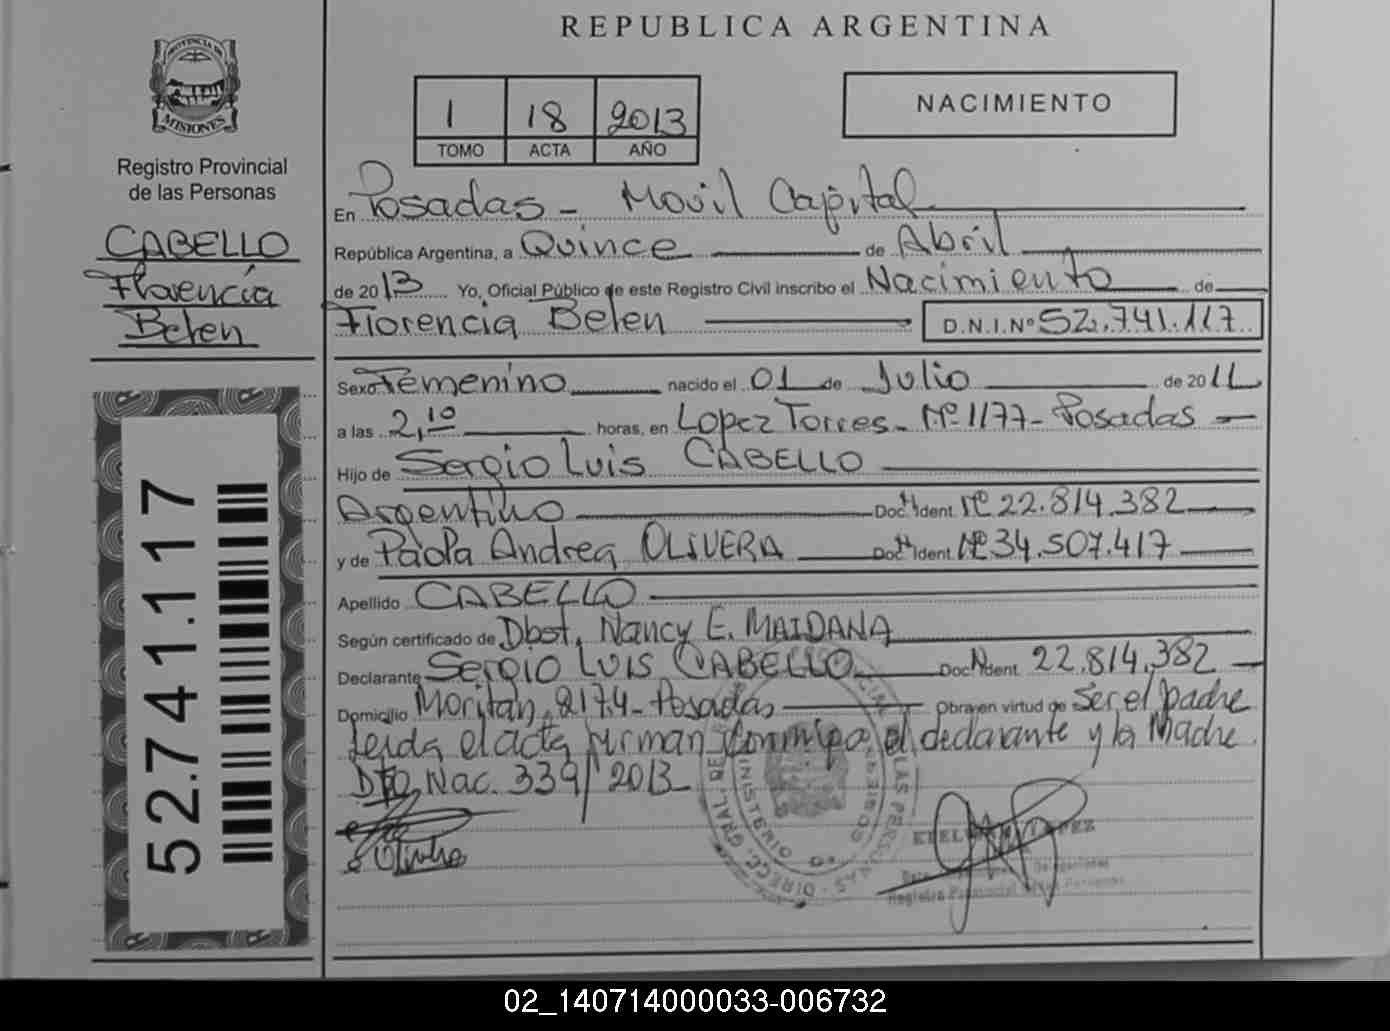 PROVINCIA DE
MISIONES
Registro Provincial
de las Personas
CABELLO
Florencia
Belen
52.741.117
REPUBLICA ARGENTINA
1 18 2013
TOMO ACTA AÑO
NACIMIENTO
En Posadas - Movil Capital
República Argentina, a Quince de Abril
de 2013 Yo, Oficial Público de este Registro Civil inscribo el Nacimiento de
Florencia Belen D.N.I.Nº 52.741.117
Sexo Femenino nacido el 01 de Julio de 2011
a las 2,10 horas, en Lopez Torres - Nº 1177 - Posadas -
Hijo de Sergio Luis CABELLO
Argentino Doc. Ident. Nº 22.814.382
y de Paola Andrea OLIVERA Doc. Ident. Nº 34.507.417
Apellido CABELLO
Según certificado de Obst. Nancy E. MAIDANA
Declarante Sergio Luis CABELLO Doc. Ident. 22.814.382
Domicilio Moritan 2174 - Posadas Obra en virtud de Ser el padre
Leida el acta firman conmigo el declarante y la Madre
Dto Nac. 339/2013
Olivera
DIRECC. GRAL. DE LAS PERSONAS
MINISTERIO GOBIERNO
Registro Provincial de las Personas
02_140714000033-006732